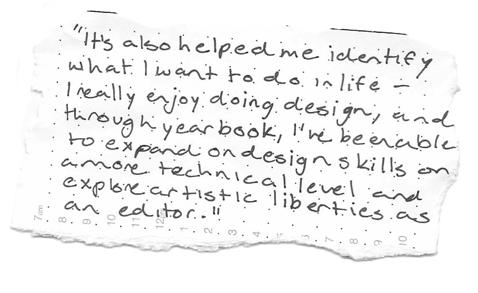 "It's also helped me identify
what I want to do in life –
I really enjoy doing design, and
through yearbook, I've been able
to expand on design skills on
a more technical level and
explore artistic liberties as
an editor."
7am 8 9 10 11 12 1 2 3 4 5 6 7 8 9 10